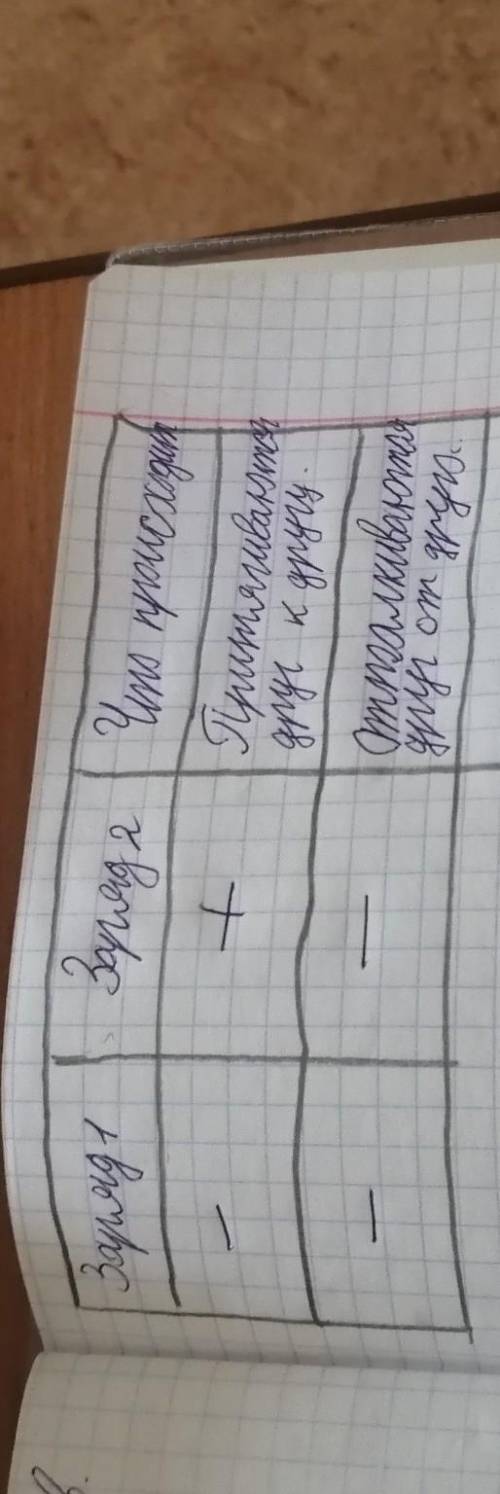 Заряд 1 Заряд 2 Что происходит
− + Притягиваются
друг к другу.
− − Отталкиваются
друг от друга.